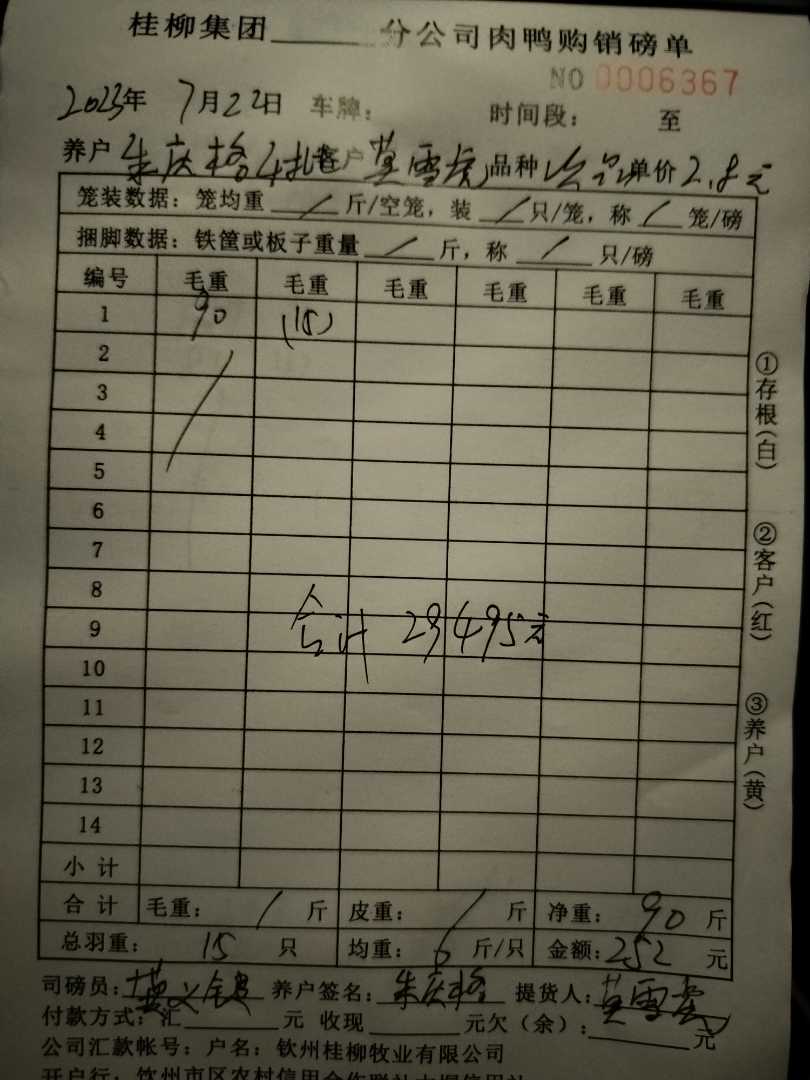 桂柳集团______分公司肉鸭购销磅单
NO 0006367
2023年 7月22日 车牌： 时间段： 至
养户 朱庆格 4批 客户 莫雪虎 品种 次品 单价 2.8元
笼装数据：笼均重 / 斤/空笼，装 / 只/笼，称 / 笼/磅
捆脚数据：铁筐或板子重量 / 斤，称 / 只/磅
编号 毛重 毛重 毛重 毛重 毛重 毛重
1 90 (15)
2
3
4
5
6
7
8
9
合计 29495元
10
11
12
13
14
小计
合计 毛重： / 斤 皮重： / 斤 净重： 90 斤
总羽重： 15 只 均重： 6 斤/只 金额：252 元
①存根(白)
②客户(红)
③养户(黄)
司磅员： 养户签名：朱庆格 提货人：莫雪虎
付款方式：汇______元 收现______元欠(余)：______元
公司汇款帐号：户名：钦州桂柳牧业有限公司
开户行：钦州市区农村信用合作联社大垌信用社